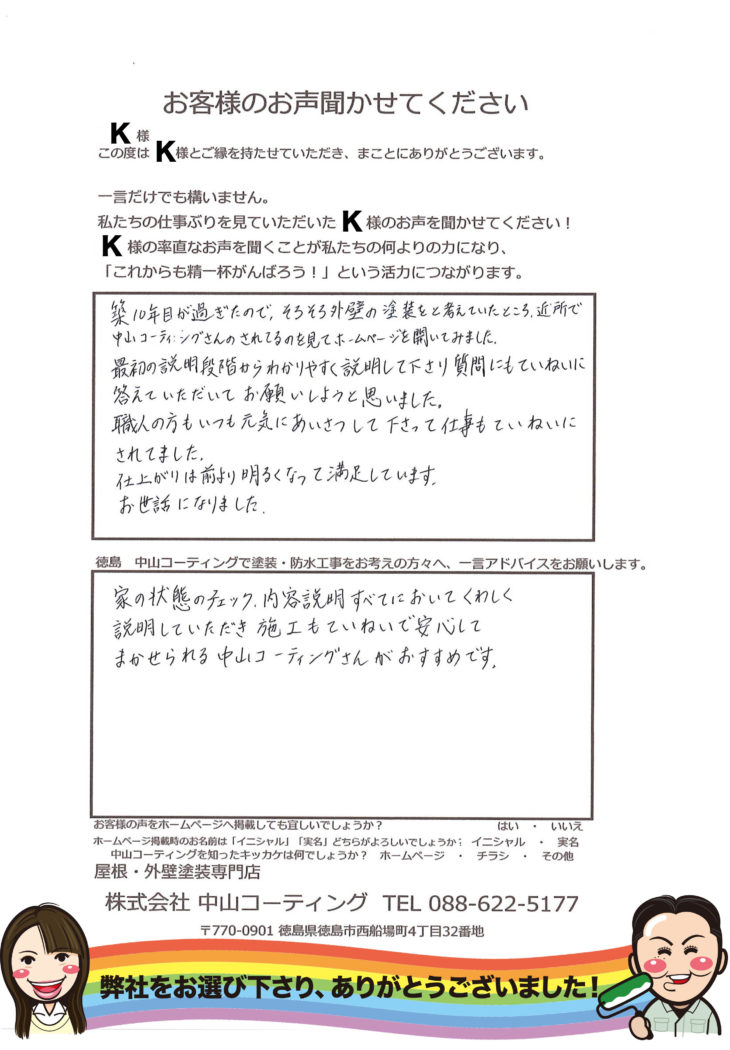 お客様のお声聞かせてください
K 様
この度は K様とご縁を持たせていただき、まことにありがとうございます。
一言だけでも構いません。
私たちの仕事ぶりを見ていただいた K 様のお声を聞かせてください！
K 様の率直なお声を聞くことが私たちの何よりの力になり、
「これからも精一杯がんばろう！」という活力につながります。
築10年目が過ぎたので、そろそろ外壁の塗装をと考えていたところ、近所で
中山コーティングさんのされてるのを見てホームページを開いてみました。
最初の説明段階からわかりやすく説明して下さり質問にもていねいに
答えていただいてお願いしようと思いました。
職人の方もいつも元気にあいさつして下さって仕事もていねいに
されてました。
仕上がりは前より明るくなって満足しています。
お世話になりました。
徳島　中山コーティングで塗装・防水工事をお考えの方々へ、一言アドバイスをお願いします。
家の状態のチェック、内容説明すべてにおいてくわしく
説明していただき施工もていねいで安心して
まかせられる中山コーティングさんがおすすめです。
お客様の声をホームページへ掲載しても宜しいでしょうか？ はい ・ いいえ
ホームページ掲載時のお名前は「イニシャル」「実名」どちらがよろしいでしょうか？ イニシャル ・ 実名
中山コーティングを知ったキッカケは何でしょうか？ ホームページ ・ チラシ ・ その他
屋根・外壁塗装専門店
株式会社 中山コーティング TEL 088-622-5177
〒770-0901 徳島県徳島市西船場町4丁目32番地
弊社をお選び下さり、ありがとうございました！